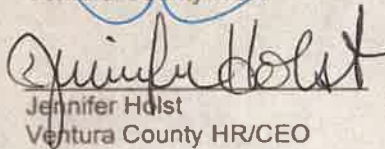 Jennifer Holst
Jennifer Holst
Ventura County HR/CEO